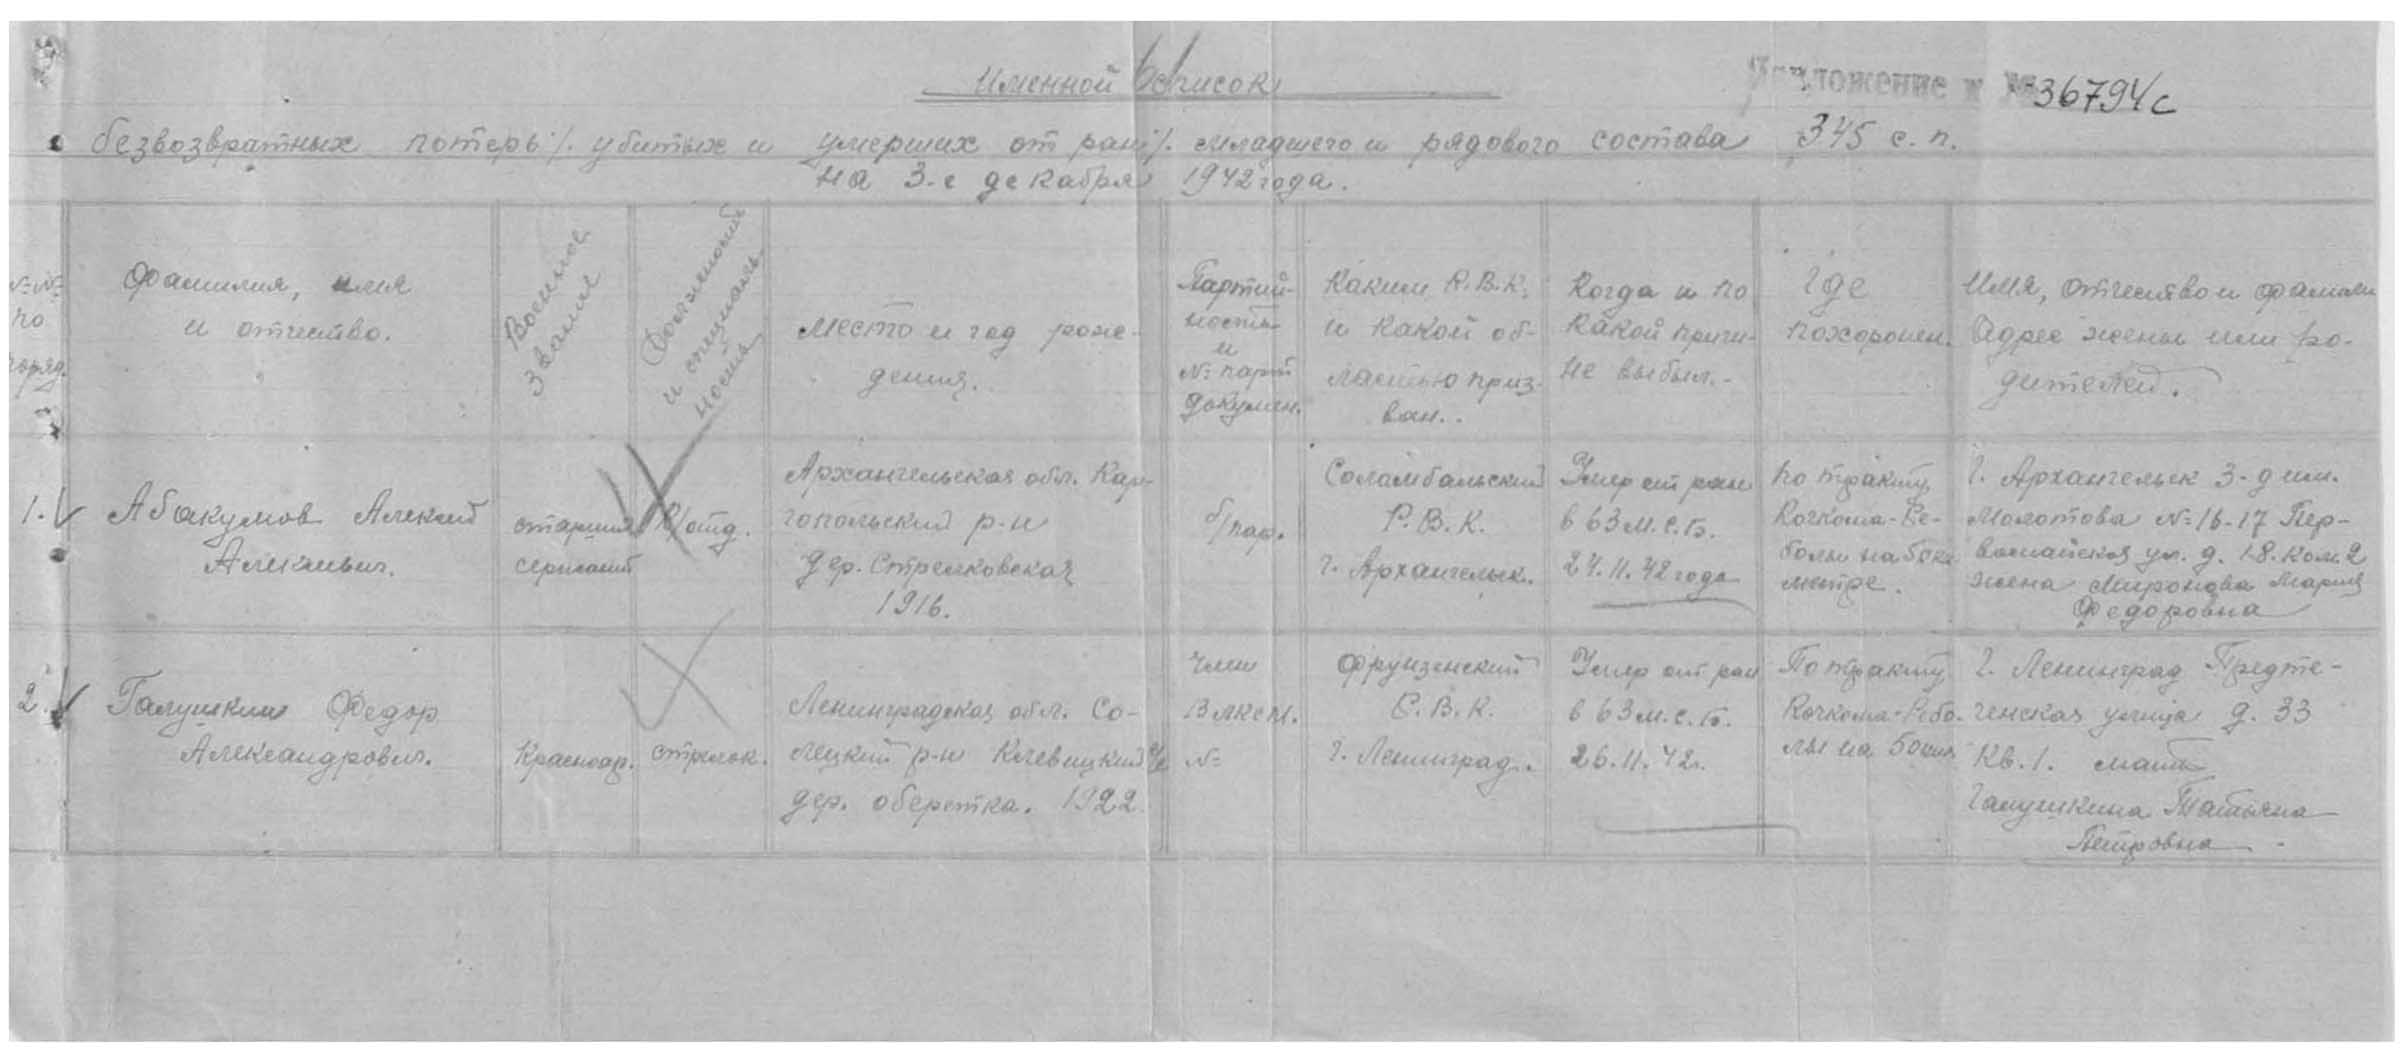 Именной список
Приложение к № 36794с
безвозвратных потерь /. убитых и умерших от ран /. младшего и рядового состава 345 с. п.
на 3-е декабря 1942 года.
№ №
по
поряд.
Фамилия, имя
и отчество.
Военное
звание
Должность
и специаль-
ность
Место и год рож-
дения.
Партий-
ность
и
№ парт
докумен.
Каким Р.В.К.
и какой об-
ластью приз-
ван.
Когда и по
какой причи-
не выбыл.-
Где
похоронен.
Имя, отчество и фамилия
Адрес жены или ро-
дителей.
1.
Абакумов Алексей
Алексеевич.
старший
сержант
К/отд.
Архангельская обл. Кар-
гопольский р-н
дер. Стрелковская
1916.
б/пар.
Соламбальский
Р.В.К.
г. Архангельск.
Умер от ран
в 63 м.с.б.
24.11.42 года
по тракту
Кочкома-Ре-
болы на
метре.
г. Архангельск 3-д им.
Молотова № 16-17 Пер-
вомайская ул. д. 18. ком. 2
жена Миронова Мария
Федоровна
2.
Галушкин Федор
Александрович.
Красноар.
стрелок.
Ленинградская обл. Со-
лецкий р-н Клевицкий с/с
дер. оберетка. 1922.
член
ВЛКСМ.
№
Фрунзенский
Р.В.К.
г. Ленинград.
Умер от ран
в 63 м.с.б.
26.11.42г.
По тракту
Кочкома-Ребо-
лы на
г. Ленинград Предте-
ченская улица д. 33
кв. 1. мать
Галушкина Татьяна
Петровна